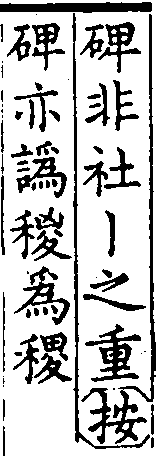 碑非社丨之重按
碑亦譌稯爲稷